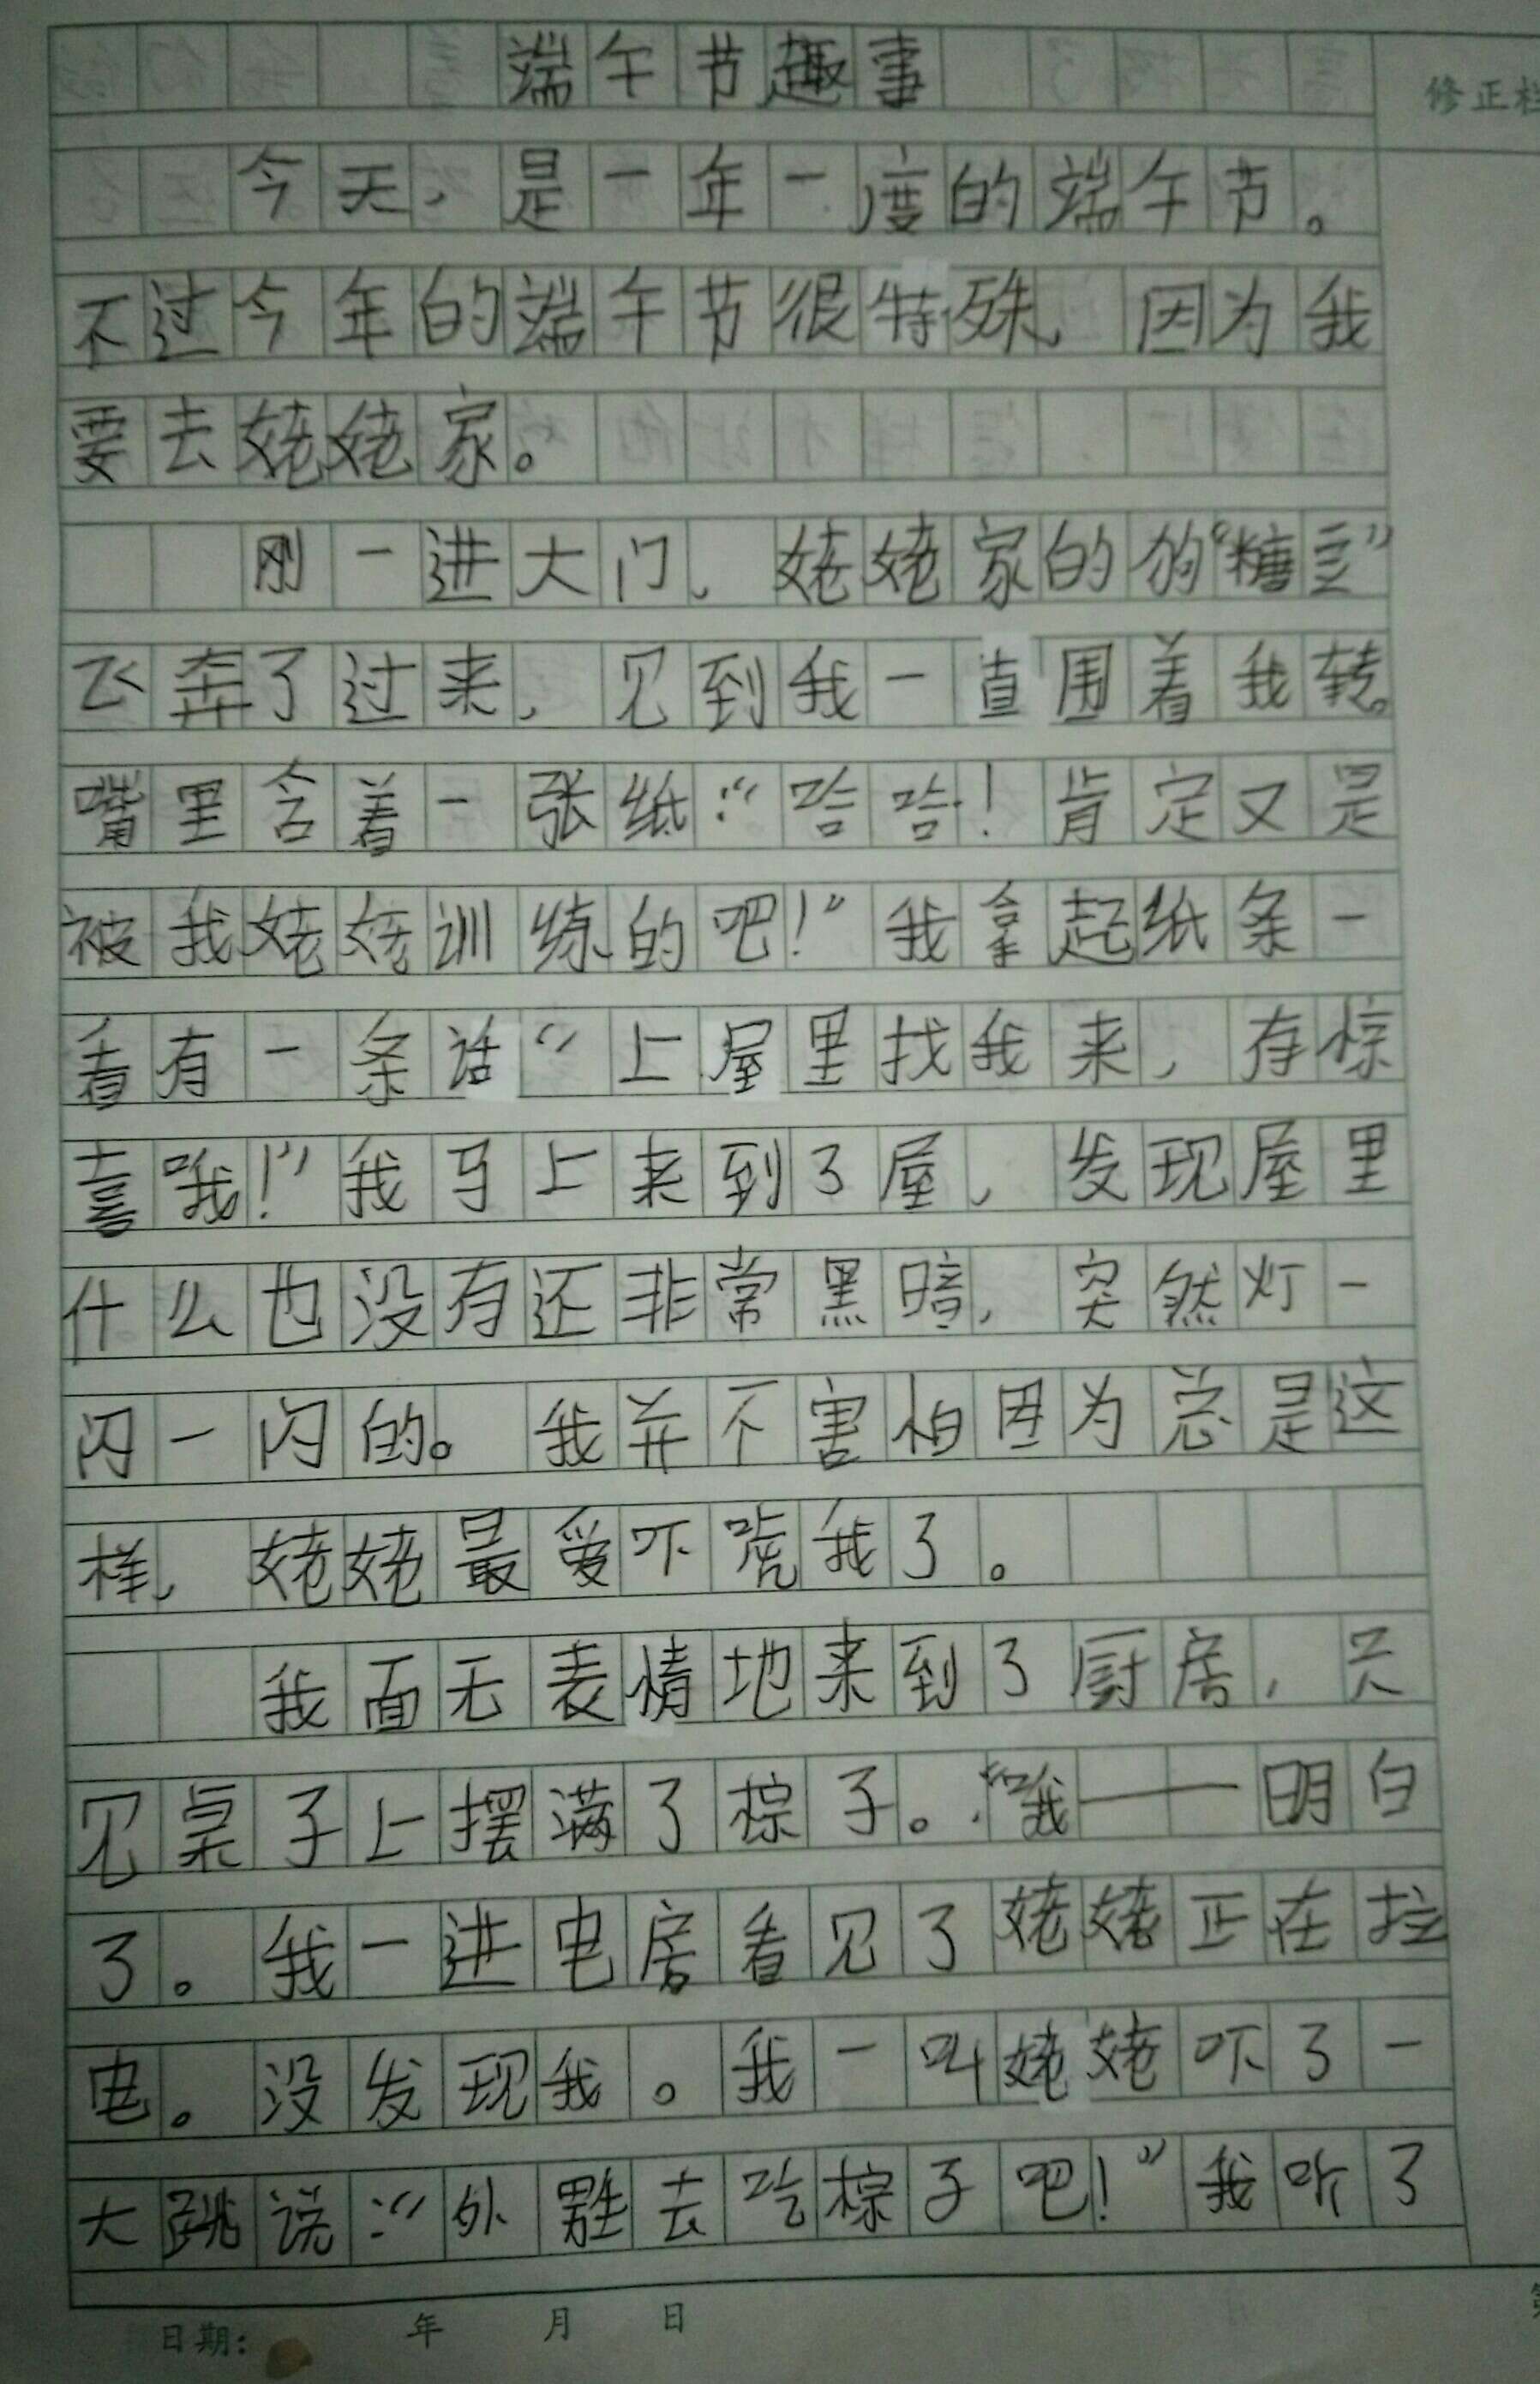 端午节趣事
修正栏
今天，是一年一度的端午节。
不过今年的端午节很特殊，因为我
要去姥姥家。
刚一进大门，姥姥家的狗“糖豆”
飞奔了过来，见到我一直围着我转。
嘴里含着一张纸：“哈哈！肯定又是
被我姥姥训练的吧！”我拿起纸条一
看有一条话“上屋里找我来，有惊
喜哦！”我马上来到了屋，发现屋里
什么也没有还非常黑暗，突然灯一
闪一闪的。我并不害怕因为总是这
样，姥姥最爱吓唬我了。
我面无表情地来到了厨房，只
见桌子上摆满了棕子。“哦——明白
了。我一进电房看见了姥姥正在拉
电。没发现我。我一叫姥姥吓了一
大跳说：“外甥去吃棕子吧！”我听了
日期： 年 月 日